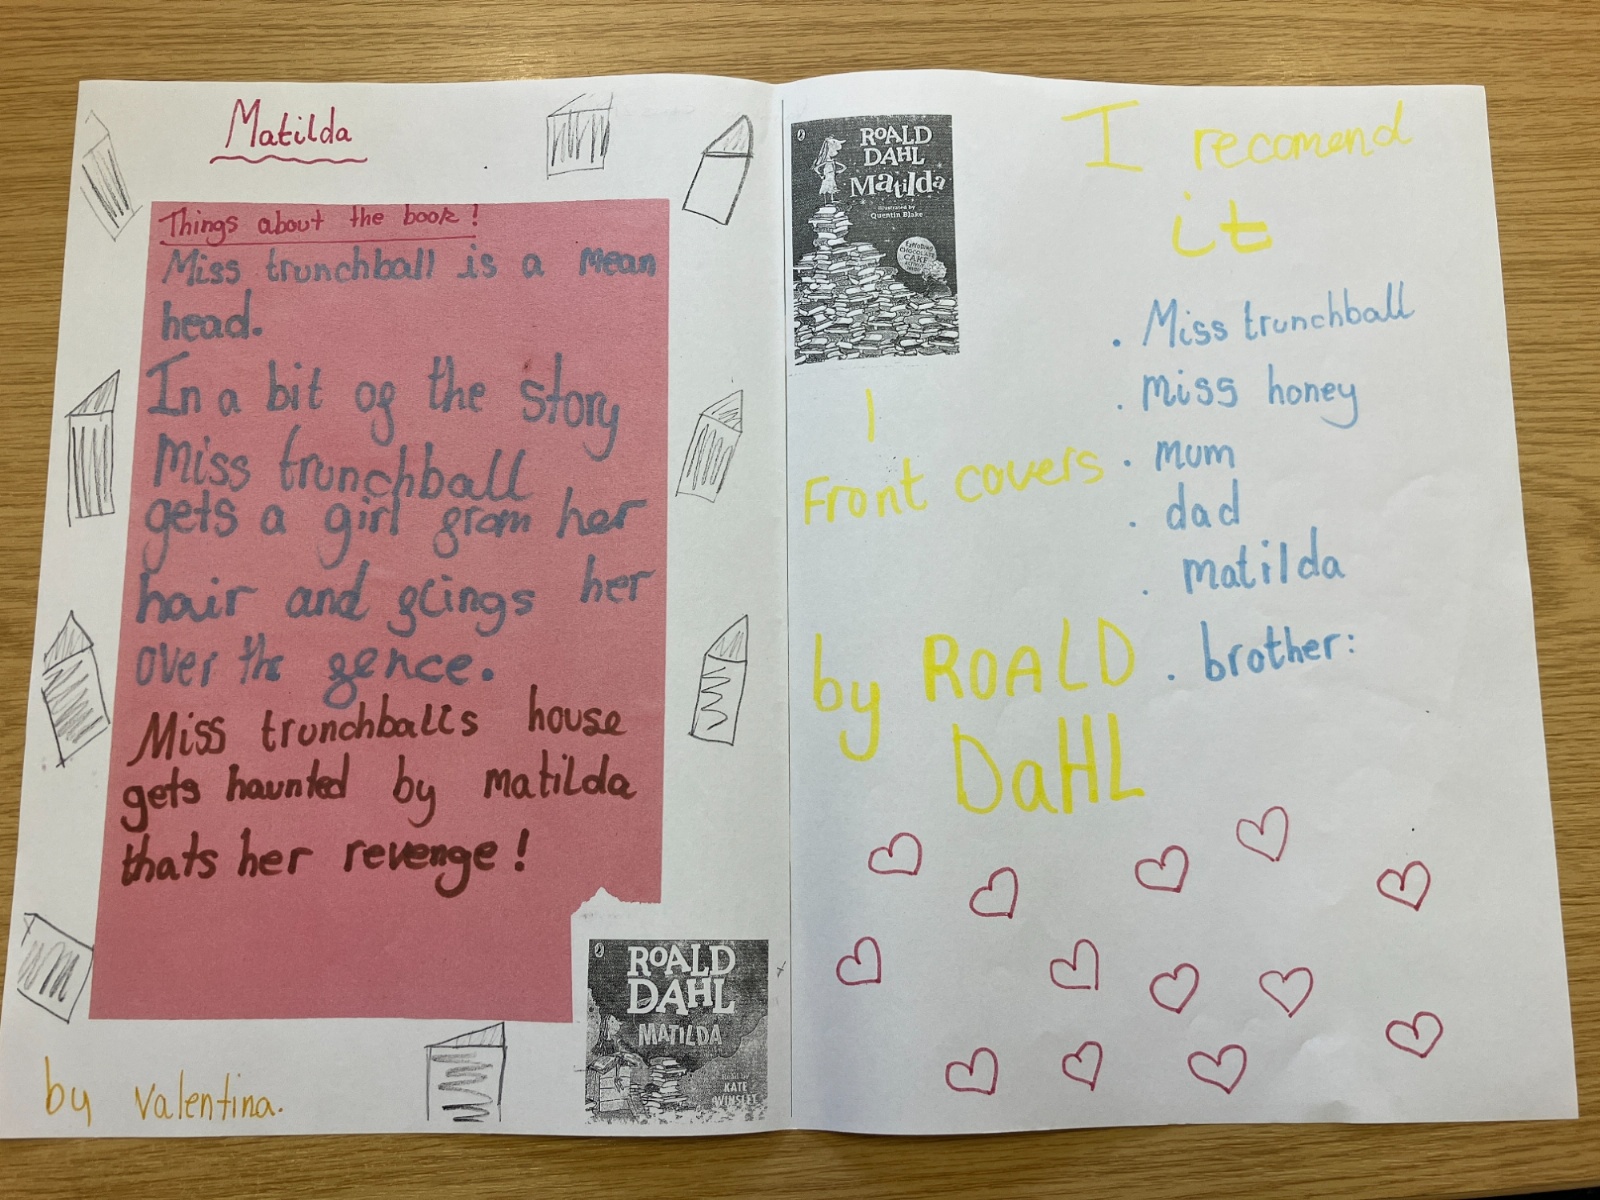 Matilda
Things about the book!
Miss trunchball is a mean
head.
In a bit og the story
Miss trunchball
gets a girl grom her
hair and glings her
over the gence.
Miss trunchballs house
gets haunted by matilda
thats her revenge!
by Valentina.
ROALD
DAHL
MATILDA
KATE
WINSLET
ROALD
DAHL
Matilda
illustrated by
Quentin Blake
CHOCOLATE
CAKE
I recomend
it
. Miss trunchball
. miss honey
. mum
. dad
. matilda
. brother:
1
Front covers
by ROALD
DaHL